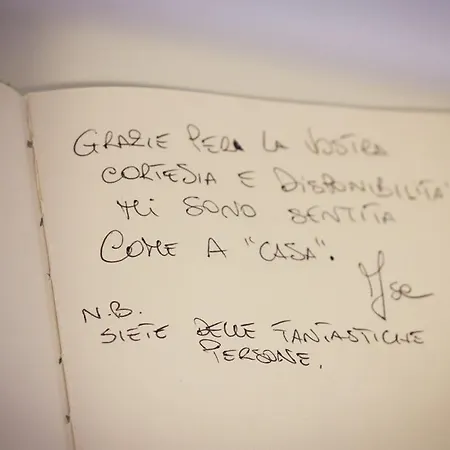 GRAZIE PER LA VOSTRA
CORTESIA E DISPONIBILITA'
MI SONO SENTITA
COME A "CASA".
N.B.
SIETE DELLE FANTASTICHE
PERSONE.